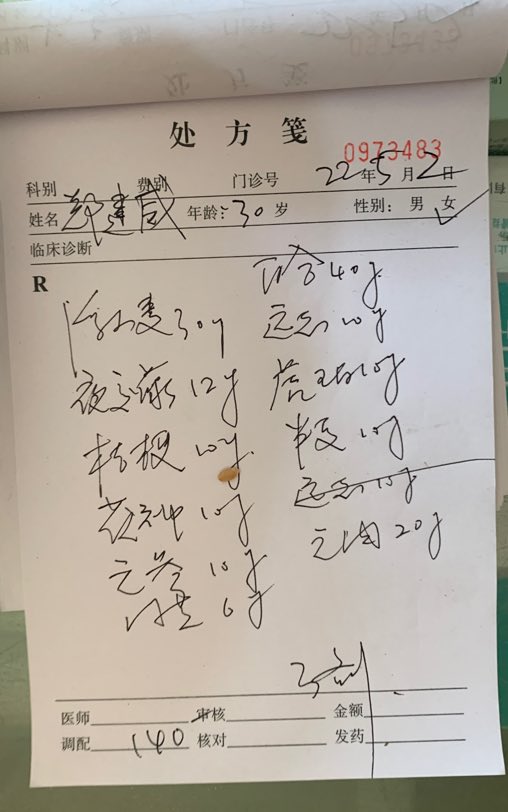 处方笺
0973483
科别 费别 门诊号 22年5月2日
姓名 郑建咸 年龄:30岁 性别: 男 女
临床诊断
R
40g
30g 远志10g
夜交藤12g 10g
桔梗10g 半夏10g
10g 远志10g
元参10g 元肉20g
6g
医师 审核 金额
调配 140 核对 发药